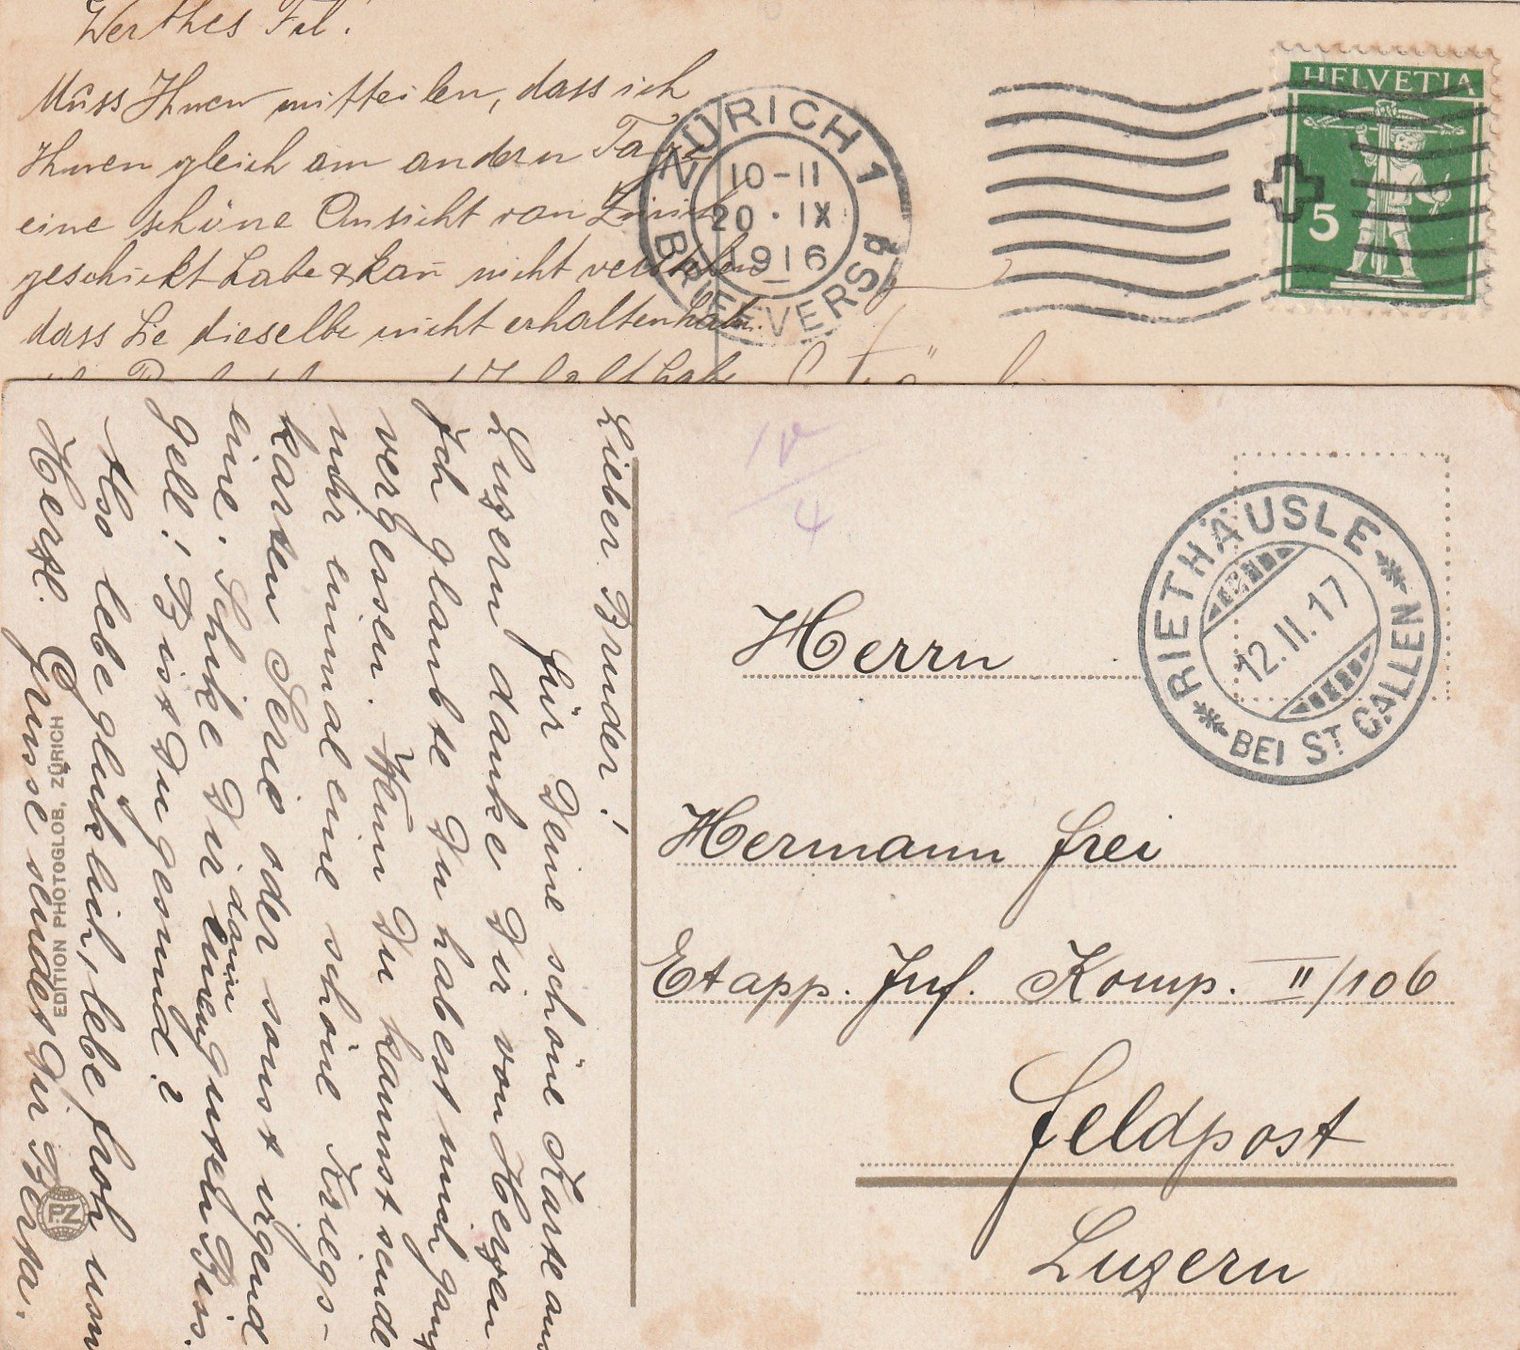 Werthes Frl.!
Muss Ihnen mitteilen, dass ich
Ihnen gleich am andern Tage
eine schöne Ansicht von Zürich
geschickt habe & kan̄ nicht verstehen
dass Sie dieselbe nicht erhalten haben.
ZÜRICH 1
10-11
20·IX
1916
BRIEFVERSD
HELVETIA
5
Lieber Bruder!
Für Deine schöne Karte aus
Luzern danke Dir von Herzen
Ich glaubte Du habest mich ganz
vergessen. Wenn Du kannst sende
mir einmal eine schöne Kriegs-
karten Serie oder sonst irgend
eine. Schike Dir dann einen guten Kuss.
Gell! Bist Du gesund?
Also lebe glücklich, lebe froh, usw
Herzl. Grüsse sendet Dir Berta.
EDITION PHOTOGLOB, ZÜRICH
PZ
10/4
RIETHÄUSLE
12.II.17
BEI ST GALLEN
Herrn
Hermann Frei
Etapp. Inf. Komp. II/106
Feldpost
Luzern